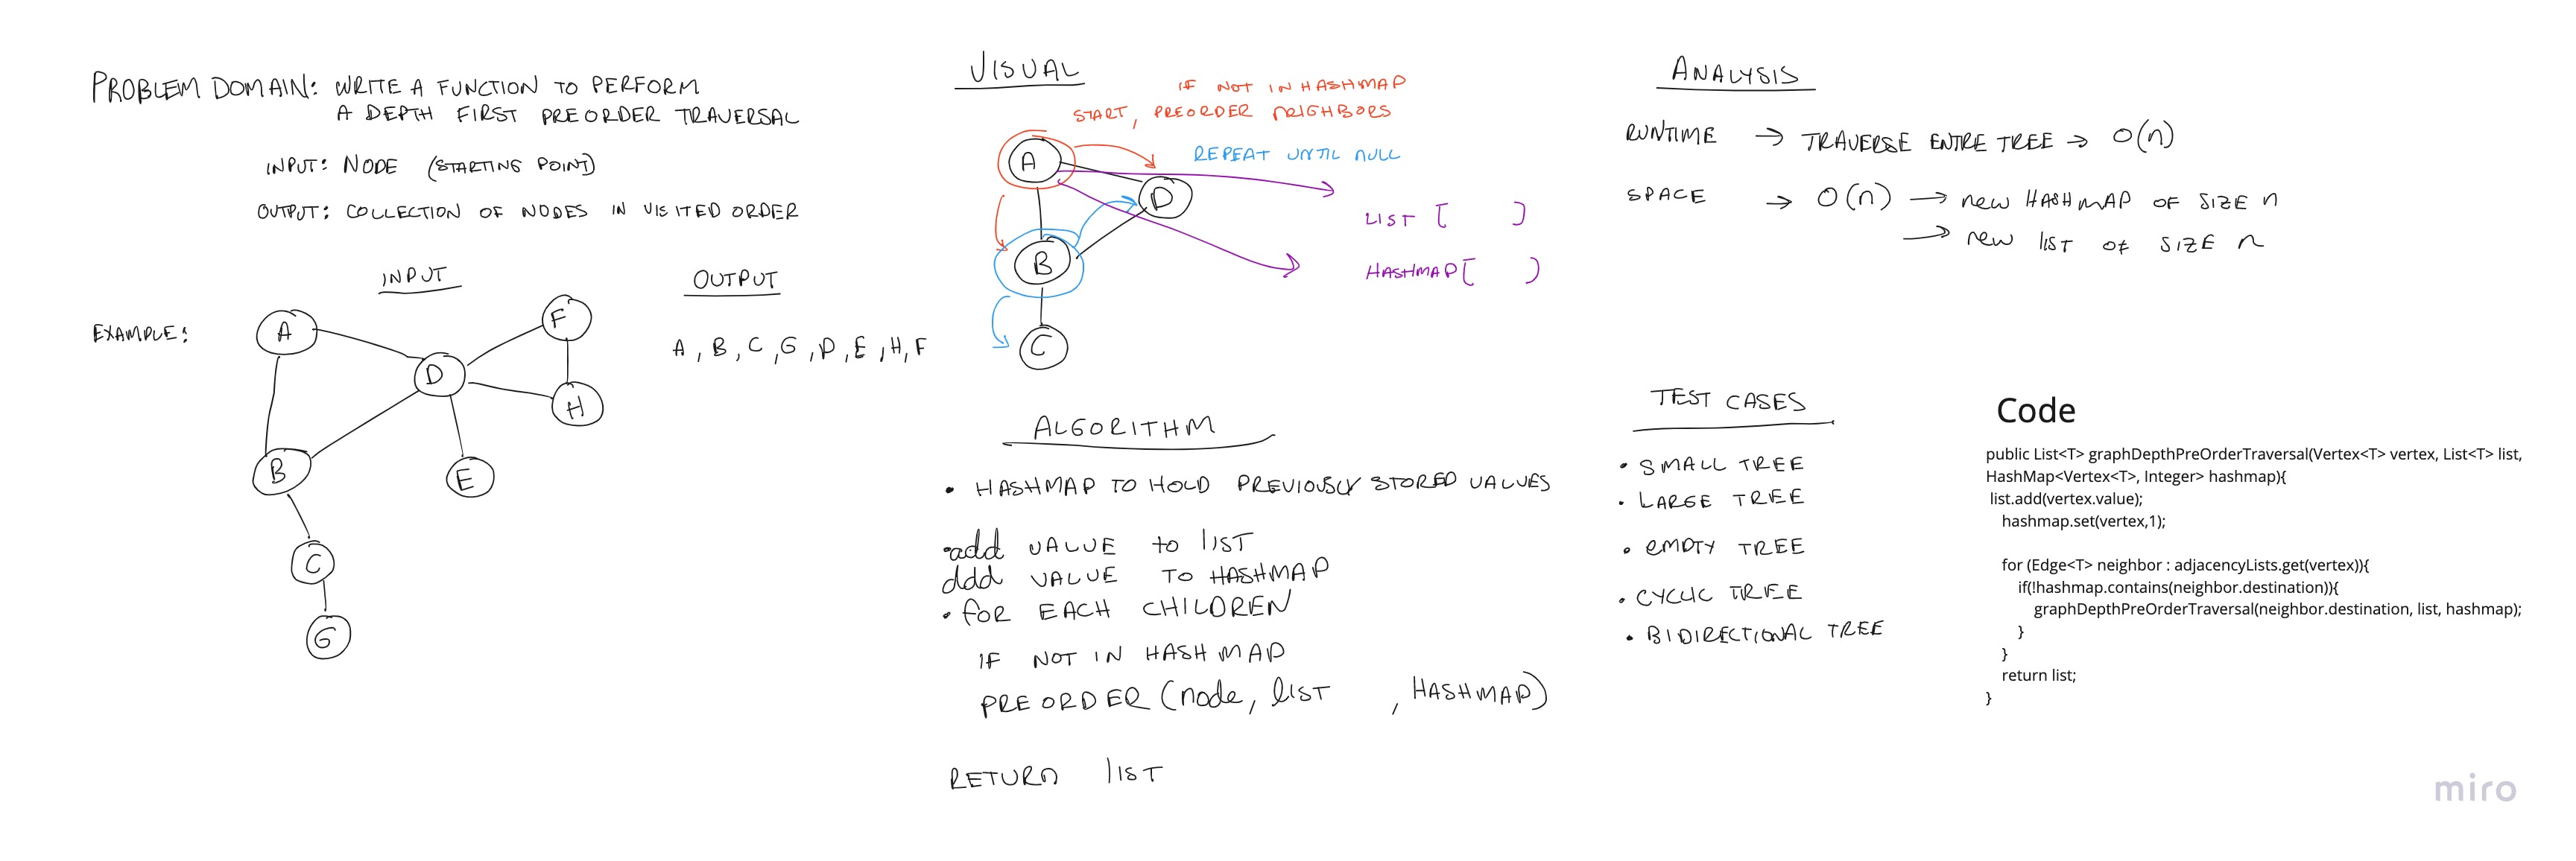 PROBLEM DOMAIN: WRITE A FUNCTION TO PERFORM
A DEPTH FIRST PREORDER TRAVERSAL
INPUT: NODE (STARTING POINT)
OUTPUT: COLLECTION OF NODES IN VISITED ORDER
INPUT
OUTPUT
EXAMPLE:
A
F
D
H
B
E
C
G
A, B, C, G, D, E, H, F
VISUAL
IF NOT IN HASHMAP
START, PREORDER NEIGHBORS
REPEAT UNTIL NULL
A
D
B
C
LIST [ ]
HASHMAP[ ]
ALGORITHM
• HASHMAP TO HOLD PREVIOUSLY STORED VALUES
•add VALUE to LIST
add VALUE TO HASHMAP
• for EACH CHILDREN
IF NOT IN HASHMAP
PREORDER (node, LIST , HASHMAP)
RETURN LIST
ANALYSIS
RUNTIME → TRAVERSE ENTRE TREE → O(n)
SPACE → O(n) → new HASHMAP OF SIZE n
→ new LIST OF SIZE n
TEST CASES
• SMALL TREE
• LARGE TREE
• EMPTY TREE
• CYCLIC TREE
• BIDIRECTIONAL TREE
Code
public List<T> graphDepthPreOrderTraversal(Vertex<T> vertex, List<T> list,
HashMap<Vertex<T>, Integer> hashmap){
list.add(vertex.value);
hashmap.set(vertex,1);
for (Edge<T> neighbor : adjacencyLists.get(vertex)){
if(!hashmap.contains(neighbor.destination)){
graphDepthPreOrderTraversal(neighbor.destination, list, hashmap);
}
}
return list;
}
miro